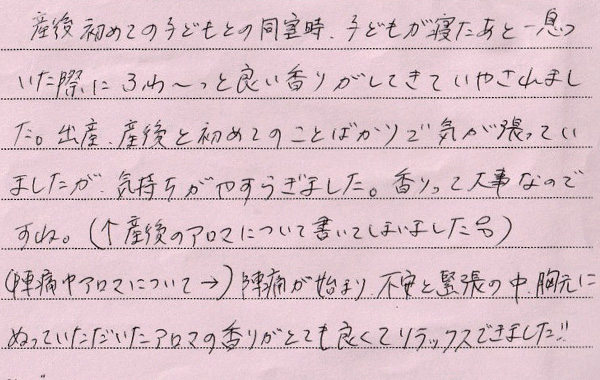 産後初めての子どもとの同室時、子どもが寝たあと一息つ
いた際に ふわ〜っと良い香りがしてきていやされまし
た。出産、産後と初めてのことばかりで気が張ってい
ましたが、気持ちがやすらぎました。香りって大事なので
すね。(↑産後のアロマについて書いてしまいました)
(陣痛中アロマについて→) 陣痛が始まり、不安と緊張の中、胸元に
ぬっていただいたアロマの香りがとても良くてリラックスできました!!